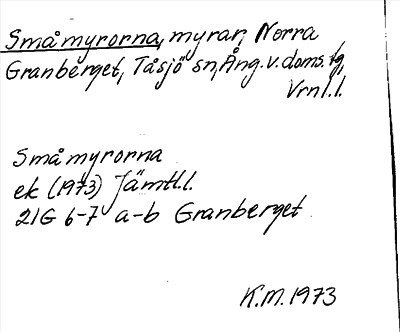 Småmyrorna, myrar, Norra
Granberget, Tåsjö sn, Ång. v. doms. tg,
Vrnl. l.
Småmyrorna
ek (1973) Jämtl. l.
21G 6-7 a-b Granberget
K.M. 1973